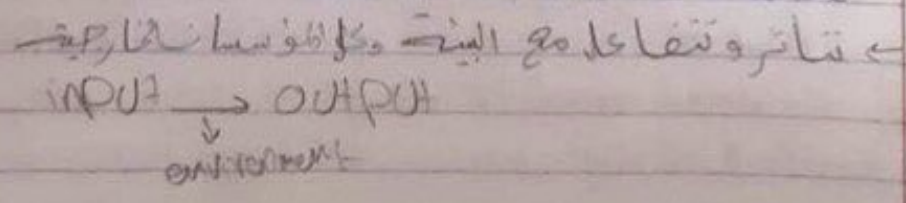 ← تتأثر وتتفاعل مع البيئة وكل المؤسسات الخارجية
input → output
↓
environment